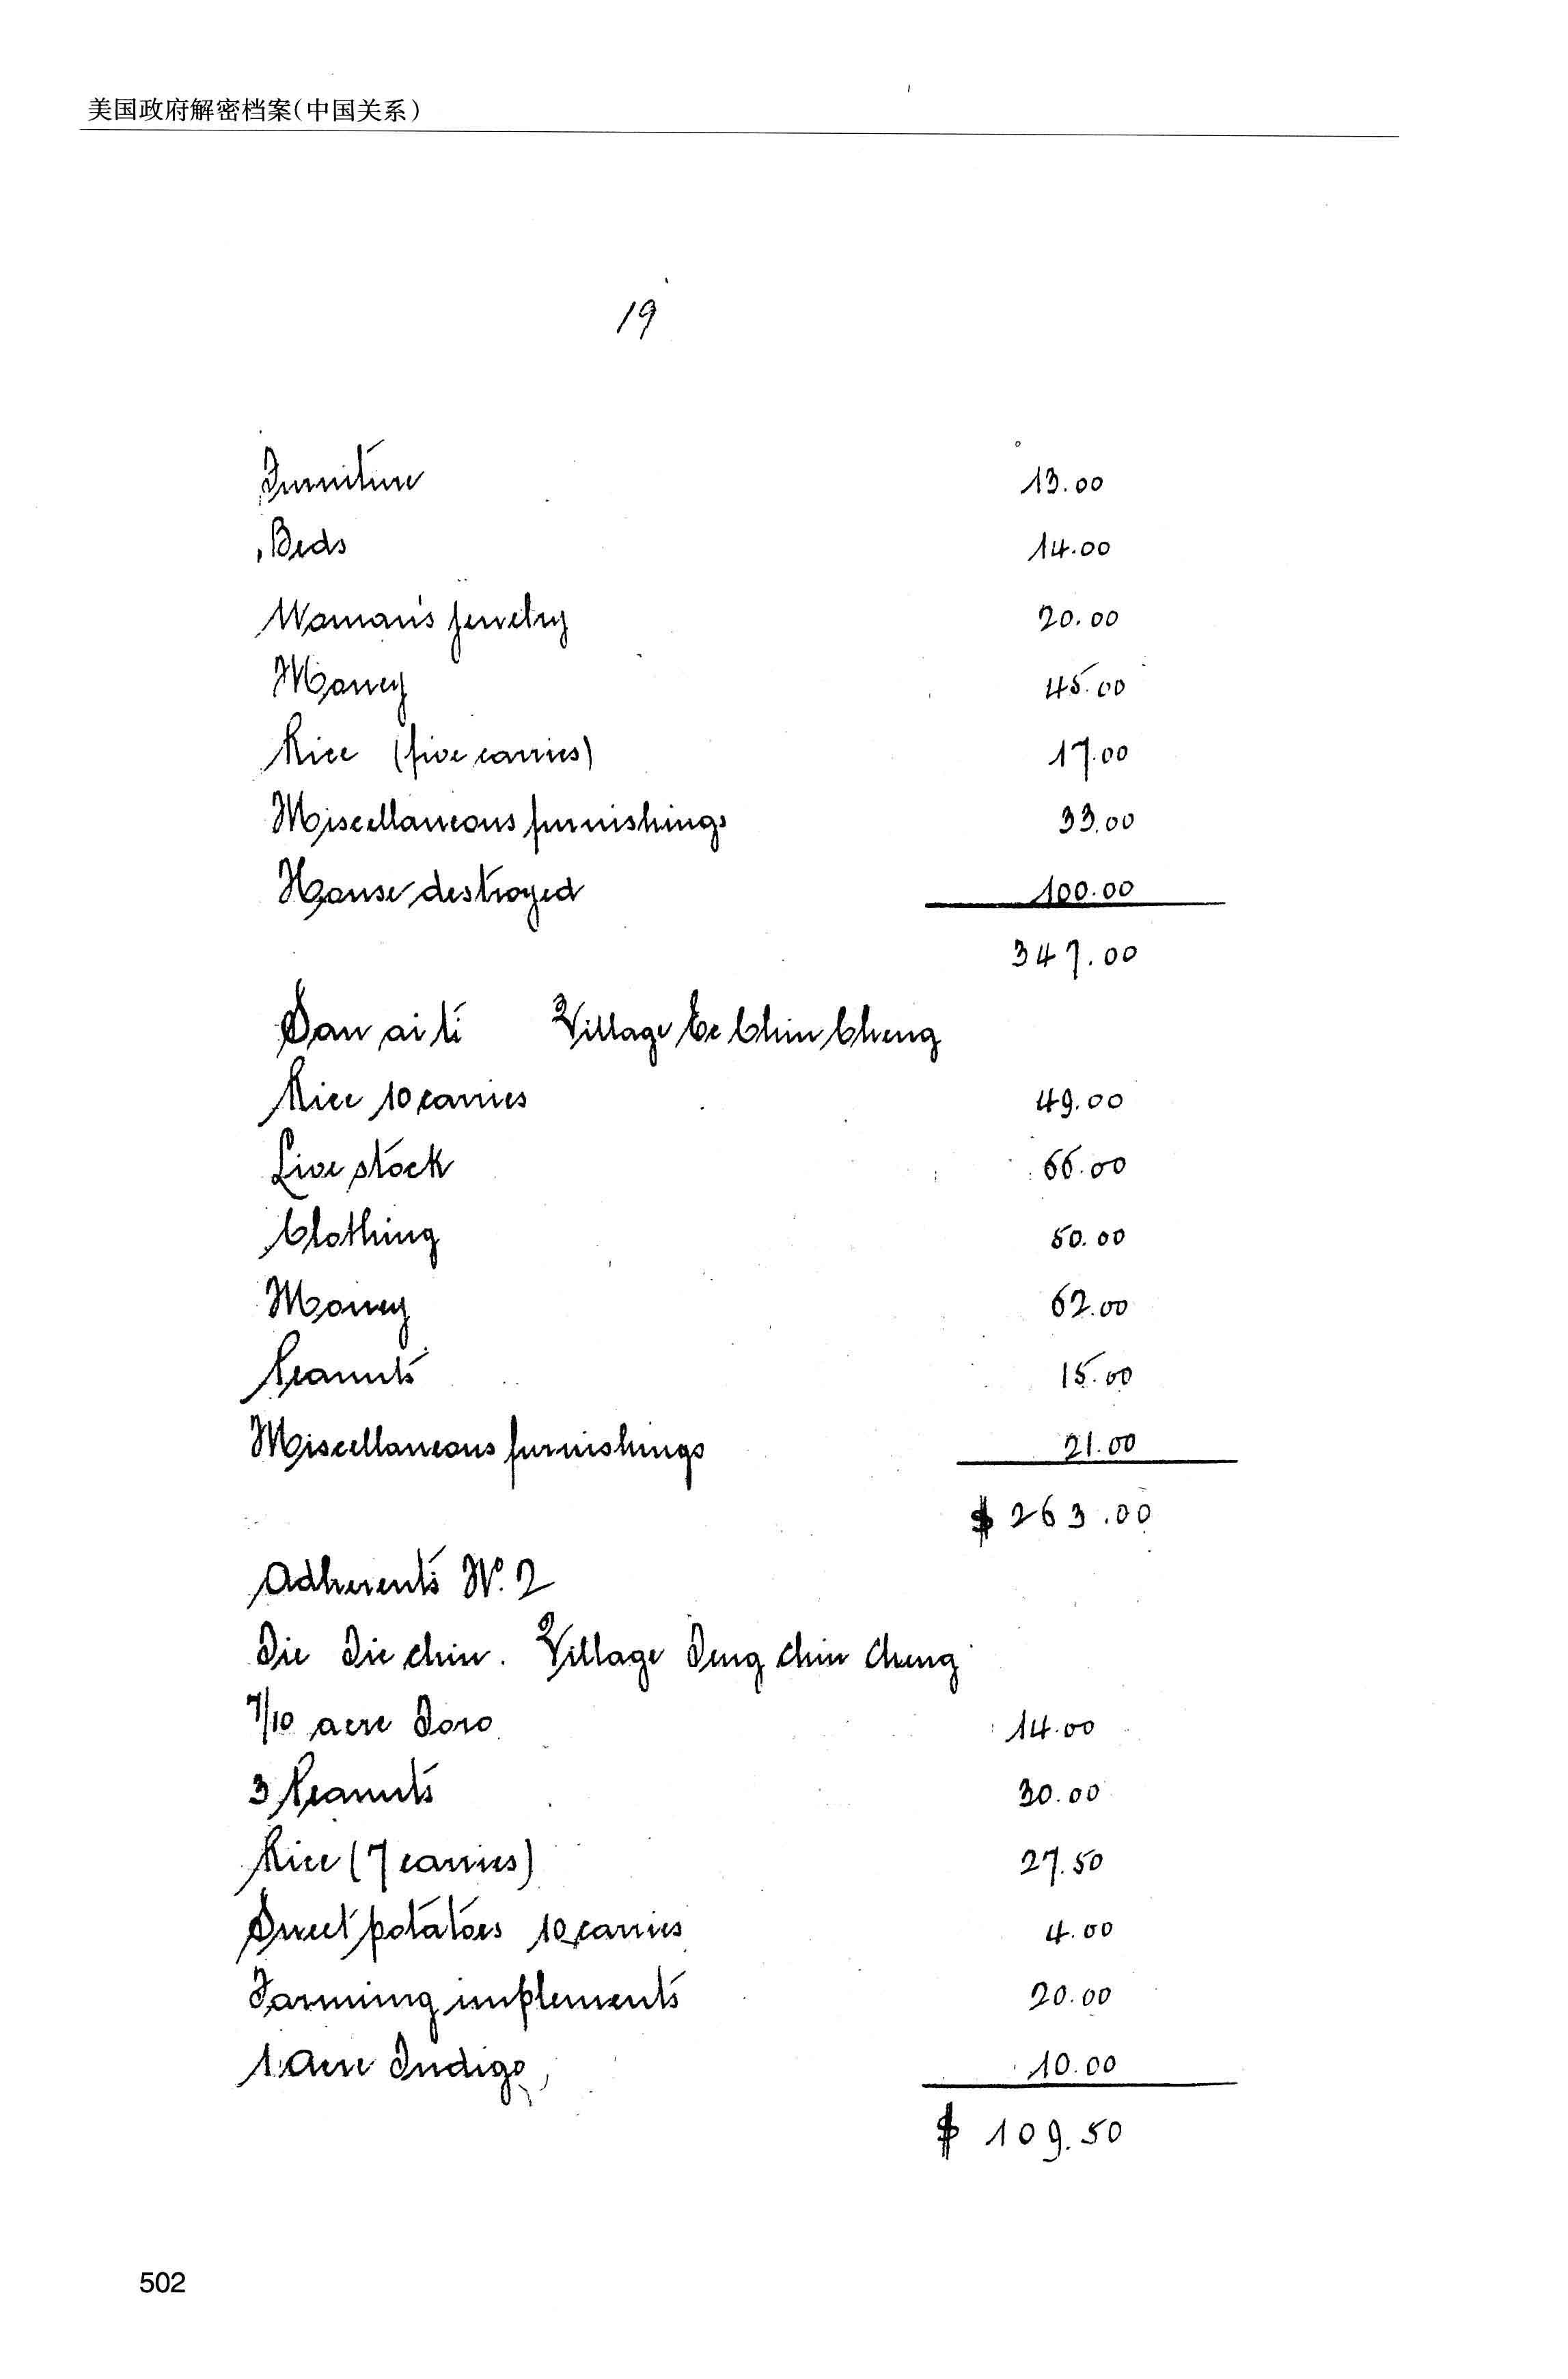 美国政府解密档案(中国关系)
19
Furniture 13.00
Beds 14.00
Woman's jewelry 20.00
Money 45.00
Rice (five carries) 17.00
Miscellaneous furnishings 33.00
House destroyed 100.00
347.00
San ai ti Village Ce Chin Cheng
Rice 10 carries 49.00
Live stock 66.00
Clothing 50.00
Money 62.00
Peanuts 15.00
Miscellaneous furnishings 21.00
$ 263.00
Adherents No. 2
Die Die chin. Village Deng chin Cheng
7/10 acre Toro 14.00
3 Peanuts 30.00
Rice (7 carries) 27.50
Sweet potatoes 10 carries 4.00
Farming implements 20.00
1 Acre Indigo 10.00
$ 109.50
502